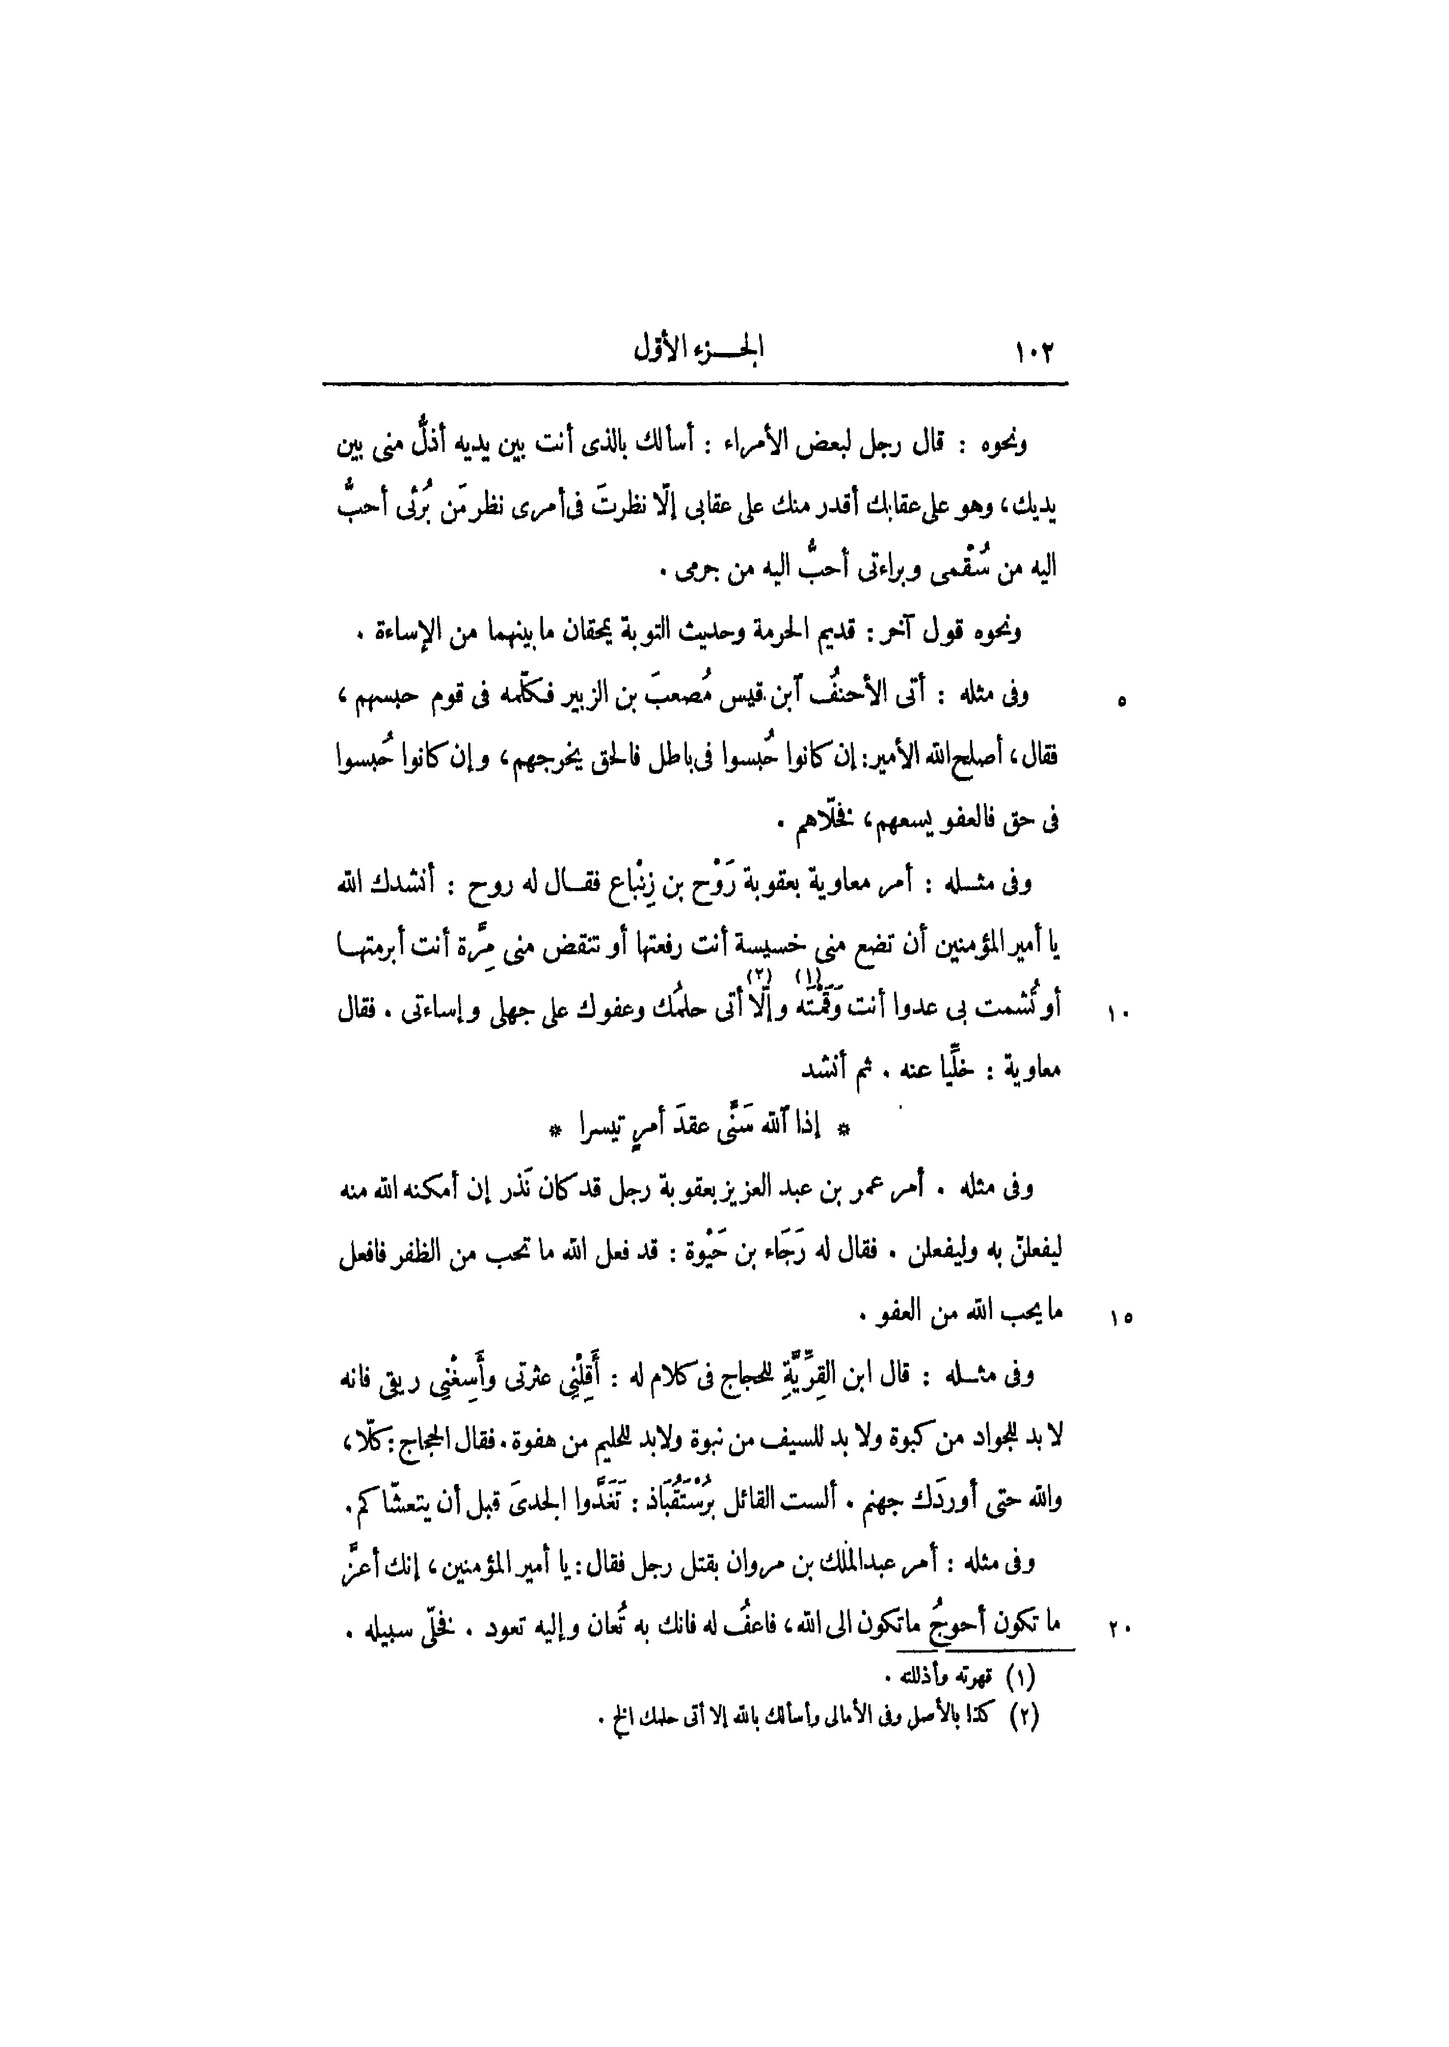 ١٠٢ الجزء الأول
ونحوه : قال رجل لبعض الأمراء : أسألك بالذى أنت بين يديه أذلُّ منى بين
يديك، وهو على عقابك أقدر منك على عقابى إلّا نظرتَ فى أمرى نظر مَن بُرئى أحبُّ
اليه من سُقْمى وبراءتى أحبُّ اليه من جرمى .
ونحوه قول آخر : قديم الحرمة وحديث التوبة يمحقان ما بينهما من الإساءة .
وفى مثله : أتى الأحنفُ ٱبن قيس مُصعبَ بن الزبير فكلّمه فى قوم حبسهم ، ٥
فقال، أصلح الله الأمير: إن كانوا حُبسوا فى باطل فالحق يخرجهم، وإن كانوا حُبسوا
فى حق فالعفو يسعهم، فخلّاهم .
وفى مثله : أمر معاوية بعقوبة رَوْح بن زِنْباع فقال له روح : أنشدك الله
يا أمير المؤمنين أن تضع منى خسيسة أنت رفعتها أو تنقض منى مِرَّة أنت أبرمتها
أو تُشمت بى عدوا أنت وَقَمْتَه (١) وإلّا (٢) أتى حلمُك وعفوك على جهلى وإساءتى . فقال ١٠
معاوية : خلِّيا عنه . ثم أنشد
* إذا ٱلله سَنَّى عقدَ أمرٍ تيسرا *
وفى مثله . أمر عمر بن عبد العزيز بعقوبة رجل قد كان نَذر إن أمكنه الله منه
ليفعلنّ به وليفعلن . فقال له رَجَاء بن حَيْوة : قد فعل الله ما تحب من الظفر فافعل
ما يحب الله من العفو . ١٥
وفى مثله : قال ابن القِرِّيَّةِ للحجاج فى كلام له : أَقِلْنِى عثرتى وأَسِغْنِى ريقى فانه
لا بد للجواد من كبوة ولا بد للسيف من نبوة ولابد للحليم من هفوة . فقال الحجاج : كلّا،
والله حتى أوردَك جهنم . ألست القائل بُرسْتَقُبَاذ : تَغَدَّوا الجدىَ قبل أن يتعشّاكم .
وفى مثله : أمر عبد الملك بن مروان بقتل رجل فقال : يا أمير المؤمنين، إنك أعزَّ
ما تكون أحوجُ ما تكون الى الله، فاعفُ له فانك به تُعان وإليه تعود . فخلّى سبيله . ٢٠
(١) قهرته وأذللته .
(٢) كذا بالأصل وفى الأمالى وأسألك بالله إلا أتى حلمك الخ .